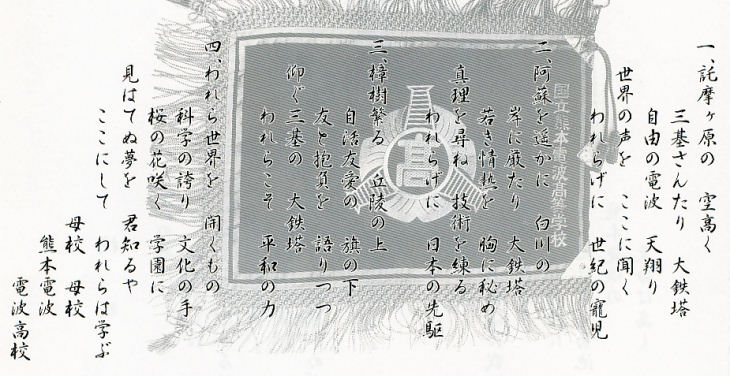 一、託摩ヶ原の 空高く
三基さんたり 大鉄塔
自由の電波 天翔り
世界の声を ここに聞く
われらげに 世紀の寵児
二、阿蘇を遥かに 白川の
岸に厳たり 大鉄塔
若き情熱を 胸に秘め
真理を尋ね 技術を練る
われらげに 日本の先駆
三、樟樹繁る 丘陵の上
自活友愛の 旗の下
友と抱負を 語りつつ
仰ぐ三基の 大鉄塔
われらこそ 平和の力
四、われら世界を 開くもの
科学の誇り 文化の手
桜の花咲く 学園に
見はてぬ夢を 君知るや
ここにして われらは学ぶ
母校 母校
熊本電波
電波高校
国立熊本電波高等学校
高